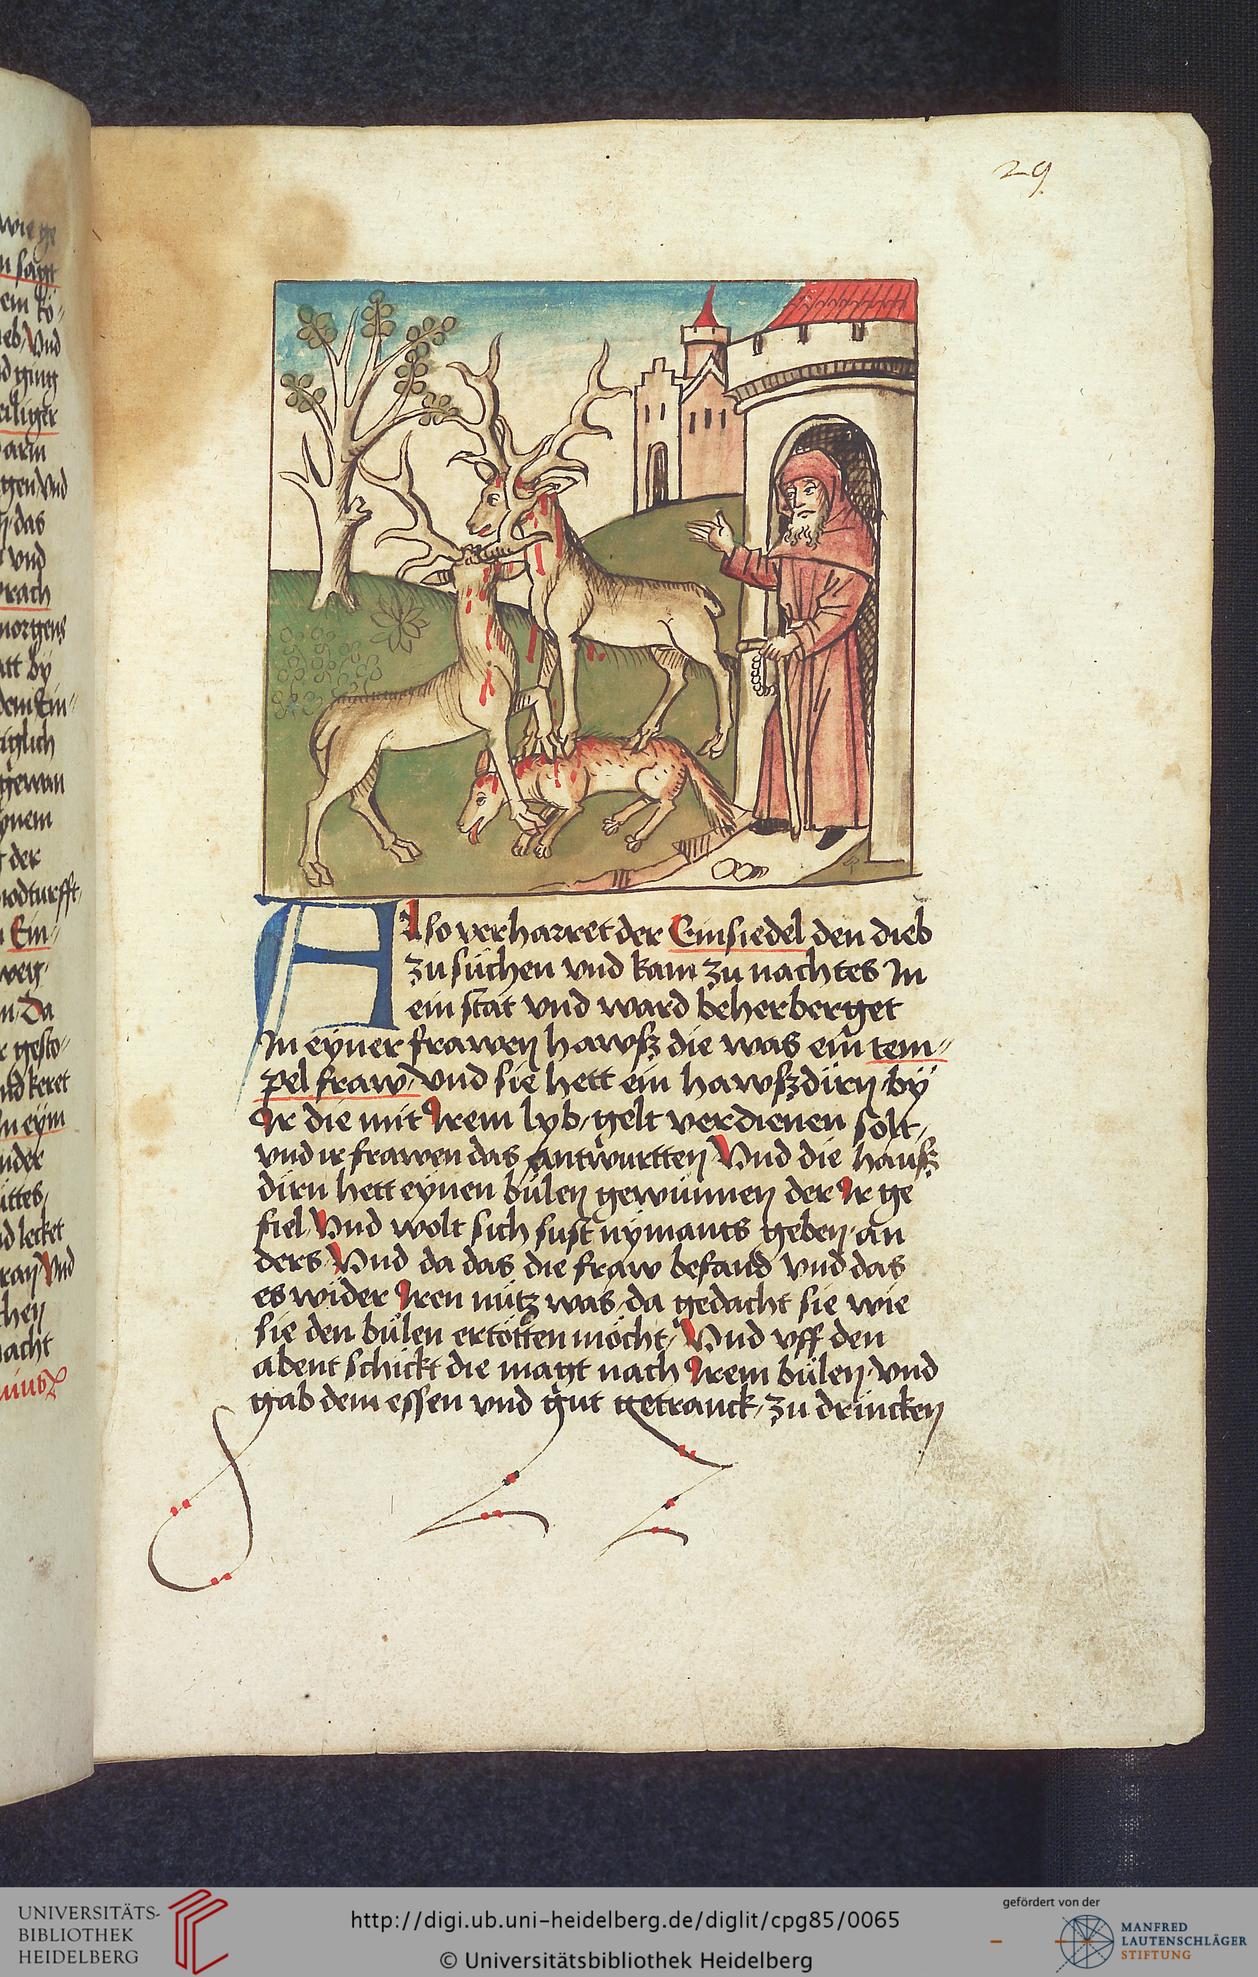 29
Also verharret der Einsiedel den dieb
zu süchen vnd kam zu nachtes In
ein stat vnd ward beherberget
In eyner frawen hawsz die was ein tem-
pel fraw / vnd sie hett ein hawszdirn by
Ir die mit Irem lyb / gelt verdienen solt /
vnd ir frawen das antwurtten Vnd die hausz
dirn hett eynen bülen gewünnen der Ir ge
fiel Vnd wolt sich sust nymants geben an
ders Vnd da das die fraw befand vnd das
es wider Iren nütz was / da gedacht sie wie
sie den bülen ertötten möcht / Vnd vff den
abent schickt die magt nach Irem bülen vnd
gab dem essen vnd gut getranck / zu drincken
wie ge
sagt
ein kö-
Vnd
ging
heiliger
darin
vnd
das
vnd
sprach
morgens
by
dem Ein-
der
Ein-
Da
gesto-
vnd keret
In eym
lecket
Vnd
UNIVERSITÄTS-
BIBLIOTHEK
HEIDELBERG
http://digi.ub.uni-heidelberg.de/diglit/cpg85/0065
© Universitätsbibliothek Heidelberg
gefördert von der
MANFRED
LAUTENSCHLÄGER
STIFTUNG